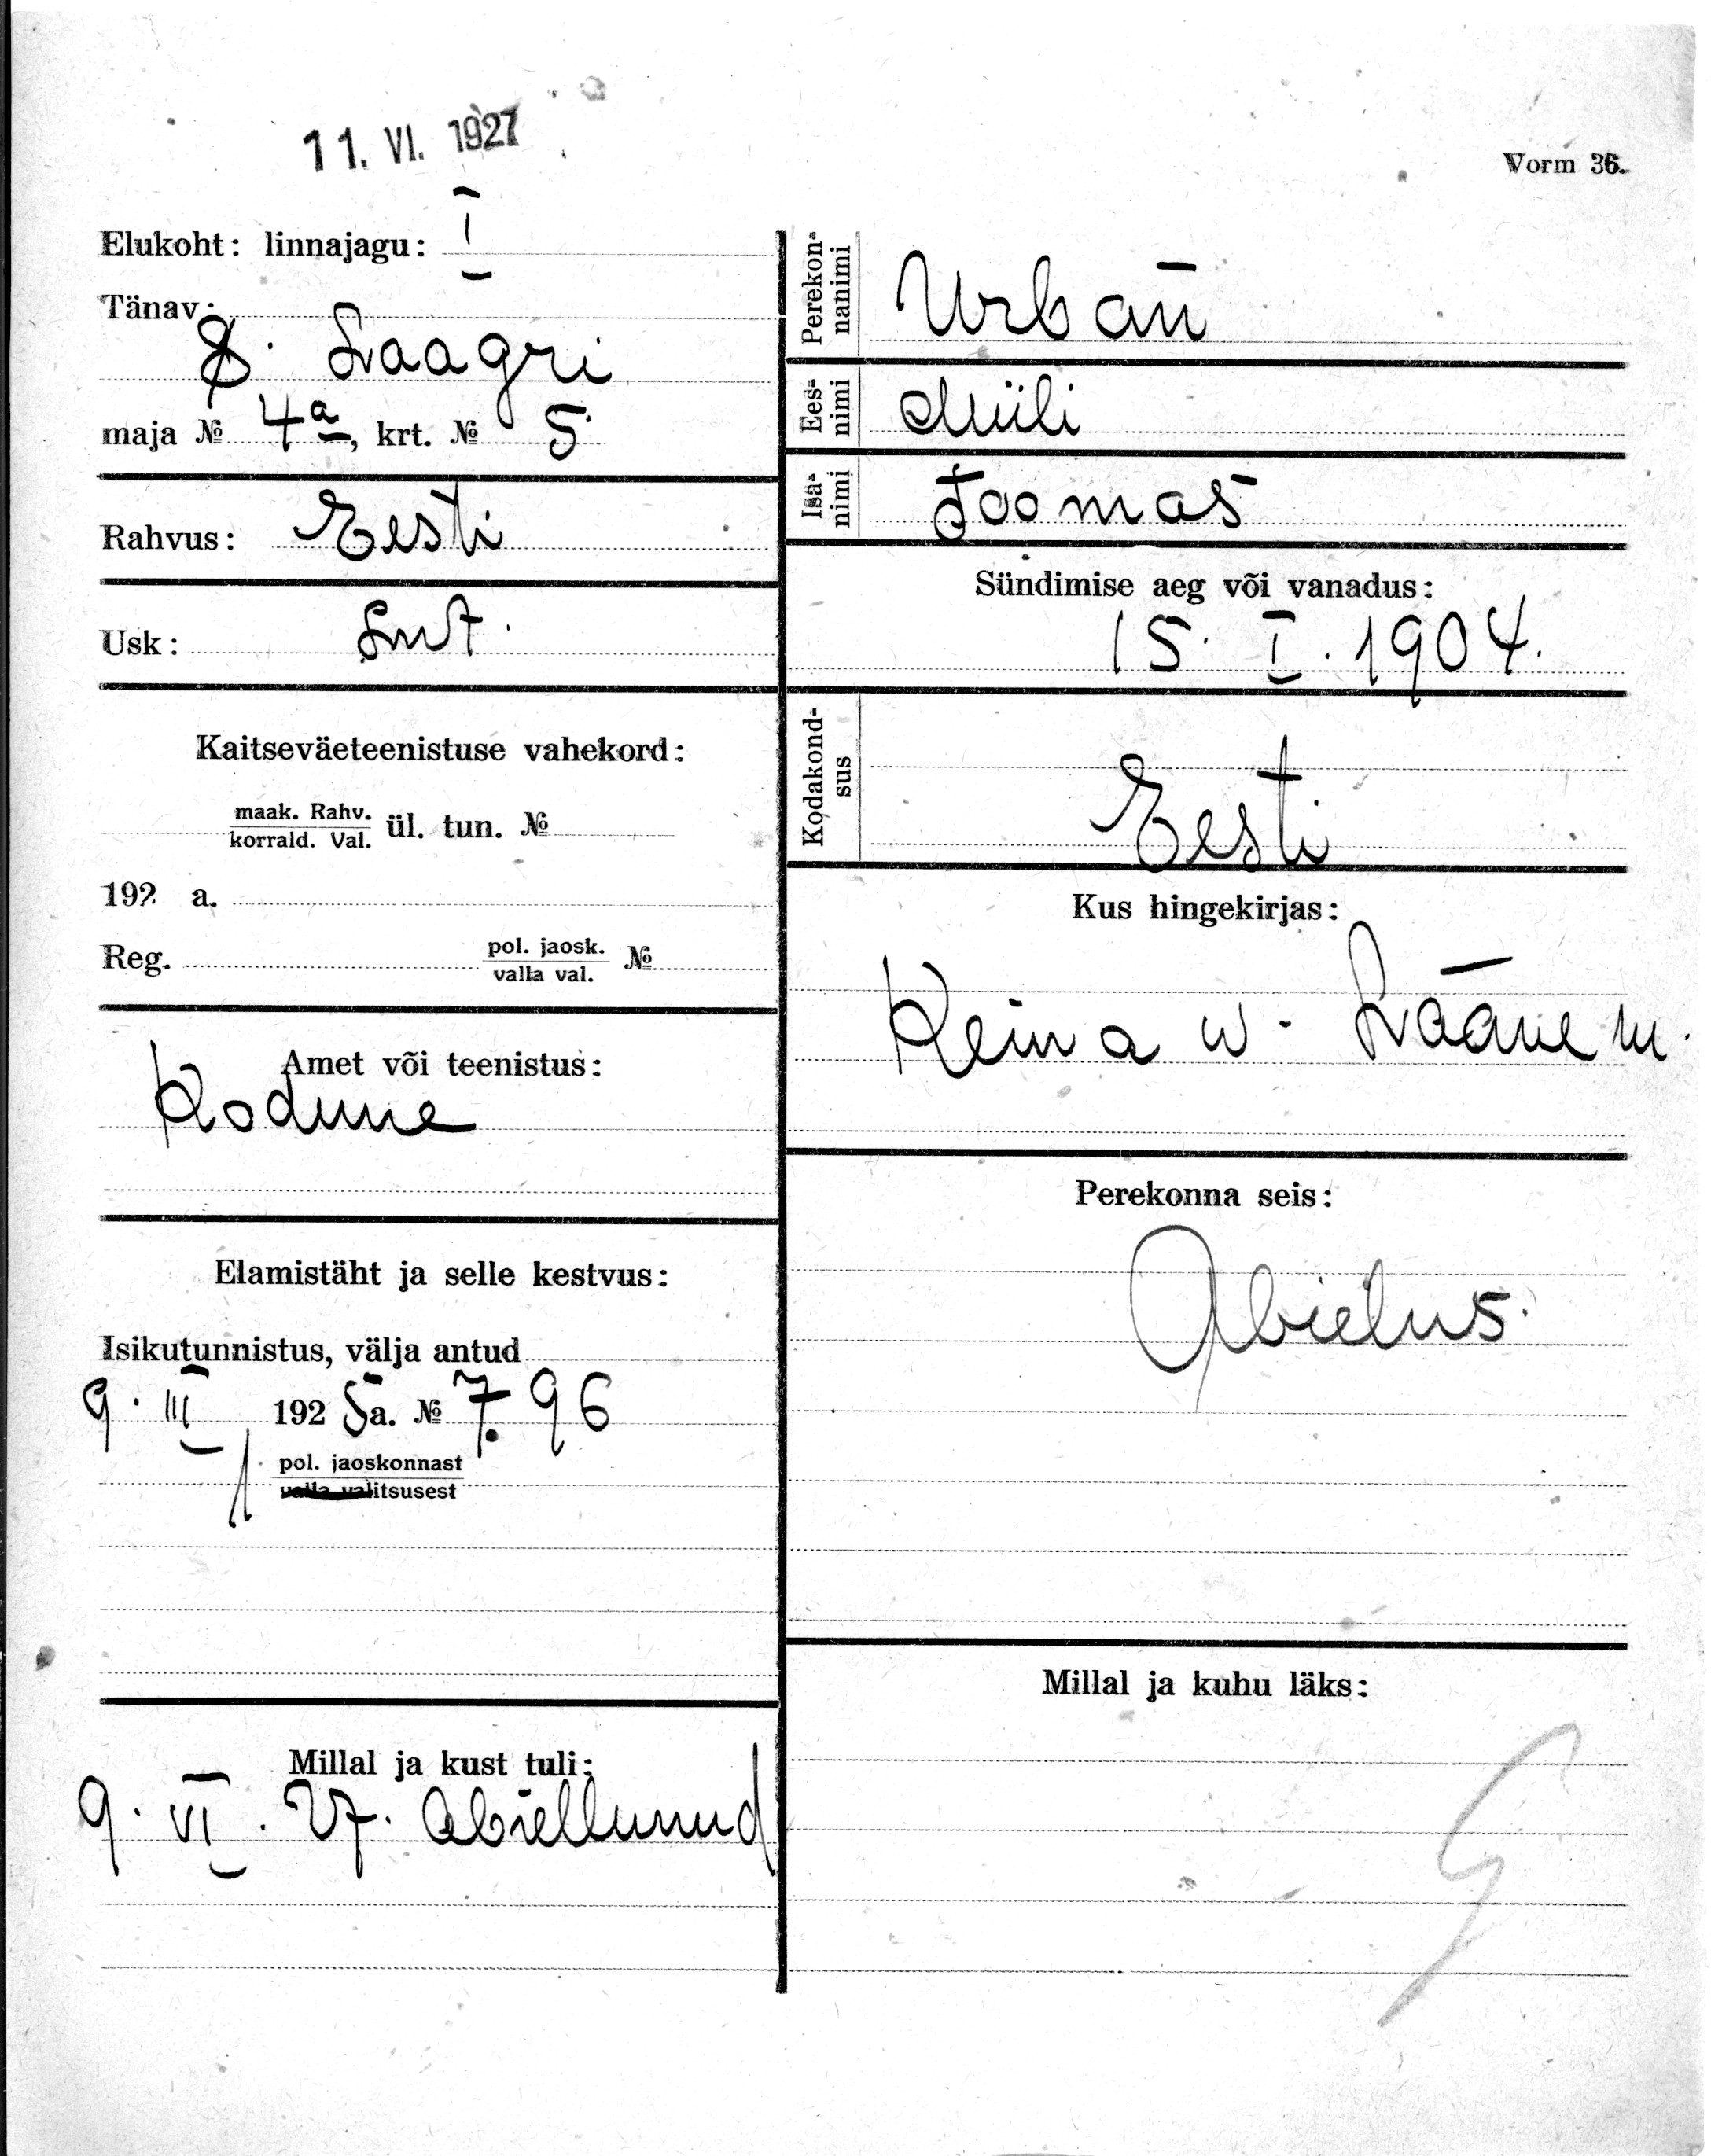 11. VI. 1927
Vorm 36.
Elukoht: linnajagu: I
Tänav:
S. Laagri
maja № 4a, krt. № 5
Rahvus: Eesti
Usk: Lut.
Kaitseväeteenistuse vahekord:
maak. Rahv.
korrald. Val.
ül. tun. №
192 a.
Reg. pol. jaosk. №
valla val.
Amet või teenistus:
Kodune
Elamistäht ja selle kestvus:
Isikutunnistus, välja antud
9. III 1925 a. № 796
1 pol. jaoskonnast
valla valitsusest
Millal ja kust tuli:
9. VI. 27. abiellunud
Perekon-
nanimi
Urban
Ees-
nimi
Miili
Isa-
nimi
Toomas
Sündimise aeg või vanadus:
15. I. 1904.
Kodakond-
sus
Eesti
Kus hingekirjas:
Keina w. Läänem.
Perekonna seis:
Abielus.
Millal ja kuhu läks: